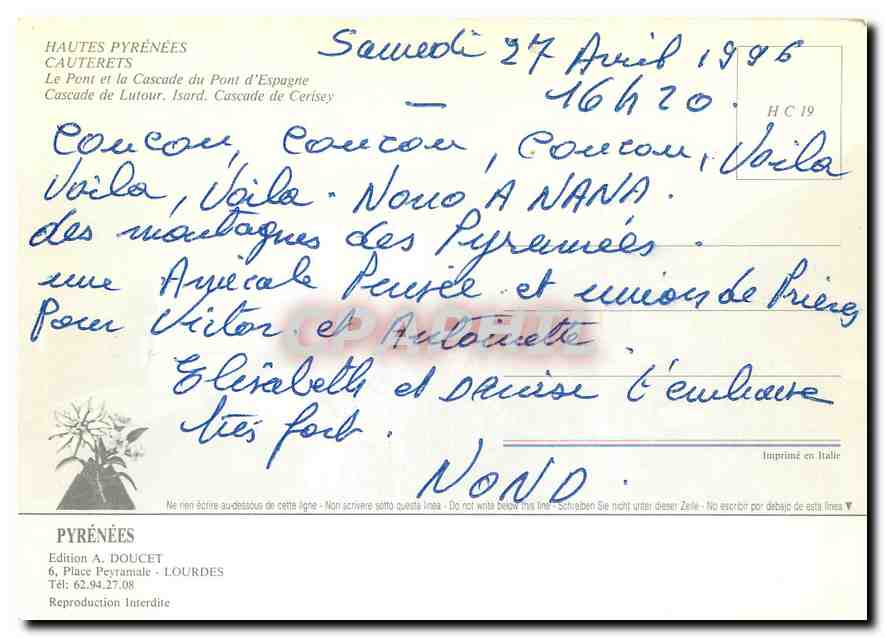 HAUTES PYRÉNÉES
CAUTERETS
Le Pont et la Cascade du Pont d'Espagne
Cascade de Lutour. Isard. Cascade de Cerisey
Samedi 27 Avril 1996
16h20.
H C 19
Coucou, Coucou, Coucou, Voila
Voila, Voila. NONO A NANA.
des montagnes des Pyramées.
une Amicale Pensée et union de Prières
Pour Victor et Antoinette.
Elisabeth et Denise t'embrasse
très fort.
NONO.
Imprimé en Italie
Ne rien écrire au-dessous de cette ligne - Non scrivere sotto questa linea - Do not write below this line - Schreiben Sie nicht unter dieser Zeile - No escribir por debajo de esta linea ▼
PYRÉNÉES
Edition A. DOUCET
6, Place Peyramale - LOURDES
Tél: 62.94.27.08
Reproduction Interdite